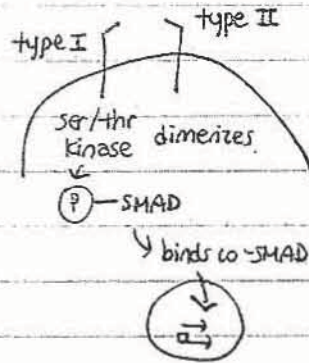 type I
type II
ser/thr
kinase
dimerizes
P
SMAD
binds co-SMAD